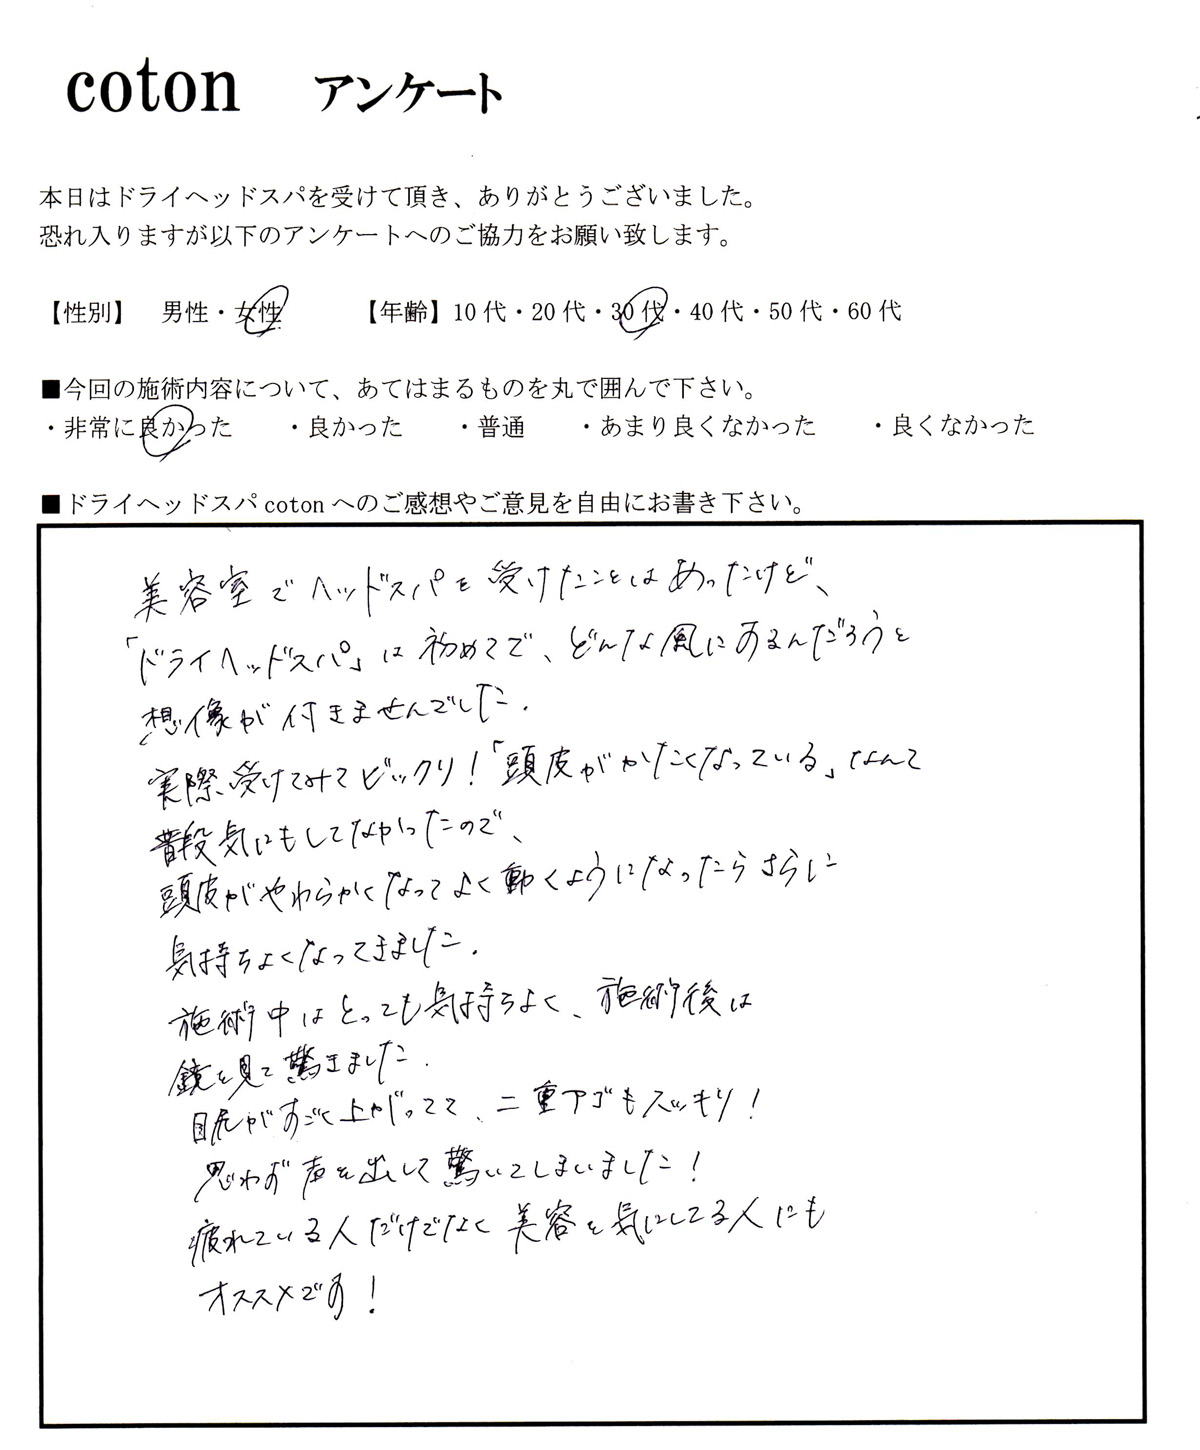 coton アンケート
本日はドライヘッドスパを受けて頂き、ありがとうございました。
恐れ入りますが以下のアンケートへのご協力をお願い致します。
【性別】 男性・女性 【年齢】10代・20代・30代・40代・50代・60代
■今回の施術内容について、あてはまるものを丸で囲んで下さい。
・非常に良かった ・良かった ・普通 ・あまり良くなかった ・良くなかった
■ドライヘッドスパcotonへのご感想やご意見を自由にお書き下さい。
美容室でヘッドスパを受けたことはあったけど、
「ドライヘッドスパ」は初めてで、どんな風にするんだろうと
想像が付きませんでした.
実際受けてみてビックリ!「頭皮がかたくなっている」なんて
普段気にもしてなかったので、
頭皮がやわらかくなってよく動くようになったらさらに
気持ちよくなってきました.
施術中はとっても気持ちよく、施術後は
鏡を見て驚きました.
目尻がすごく上がってて、二重アゴもスッキリ!
思わず声を出して驚いてしまいました!
疲れている人だけでなく美容を気にしてる人にも
オススメです!